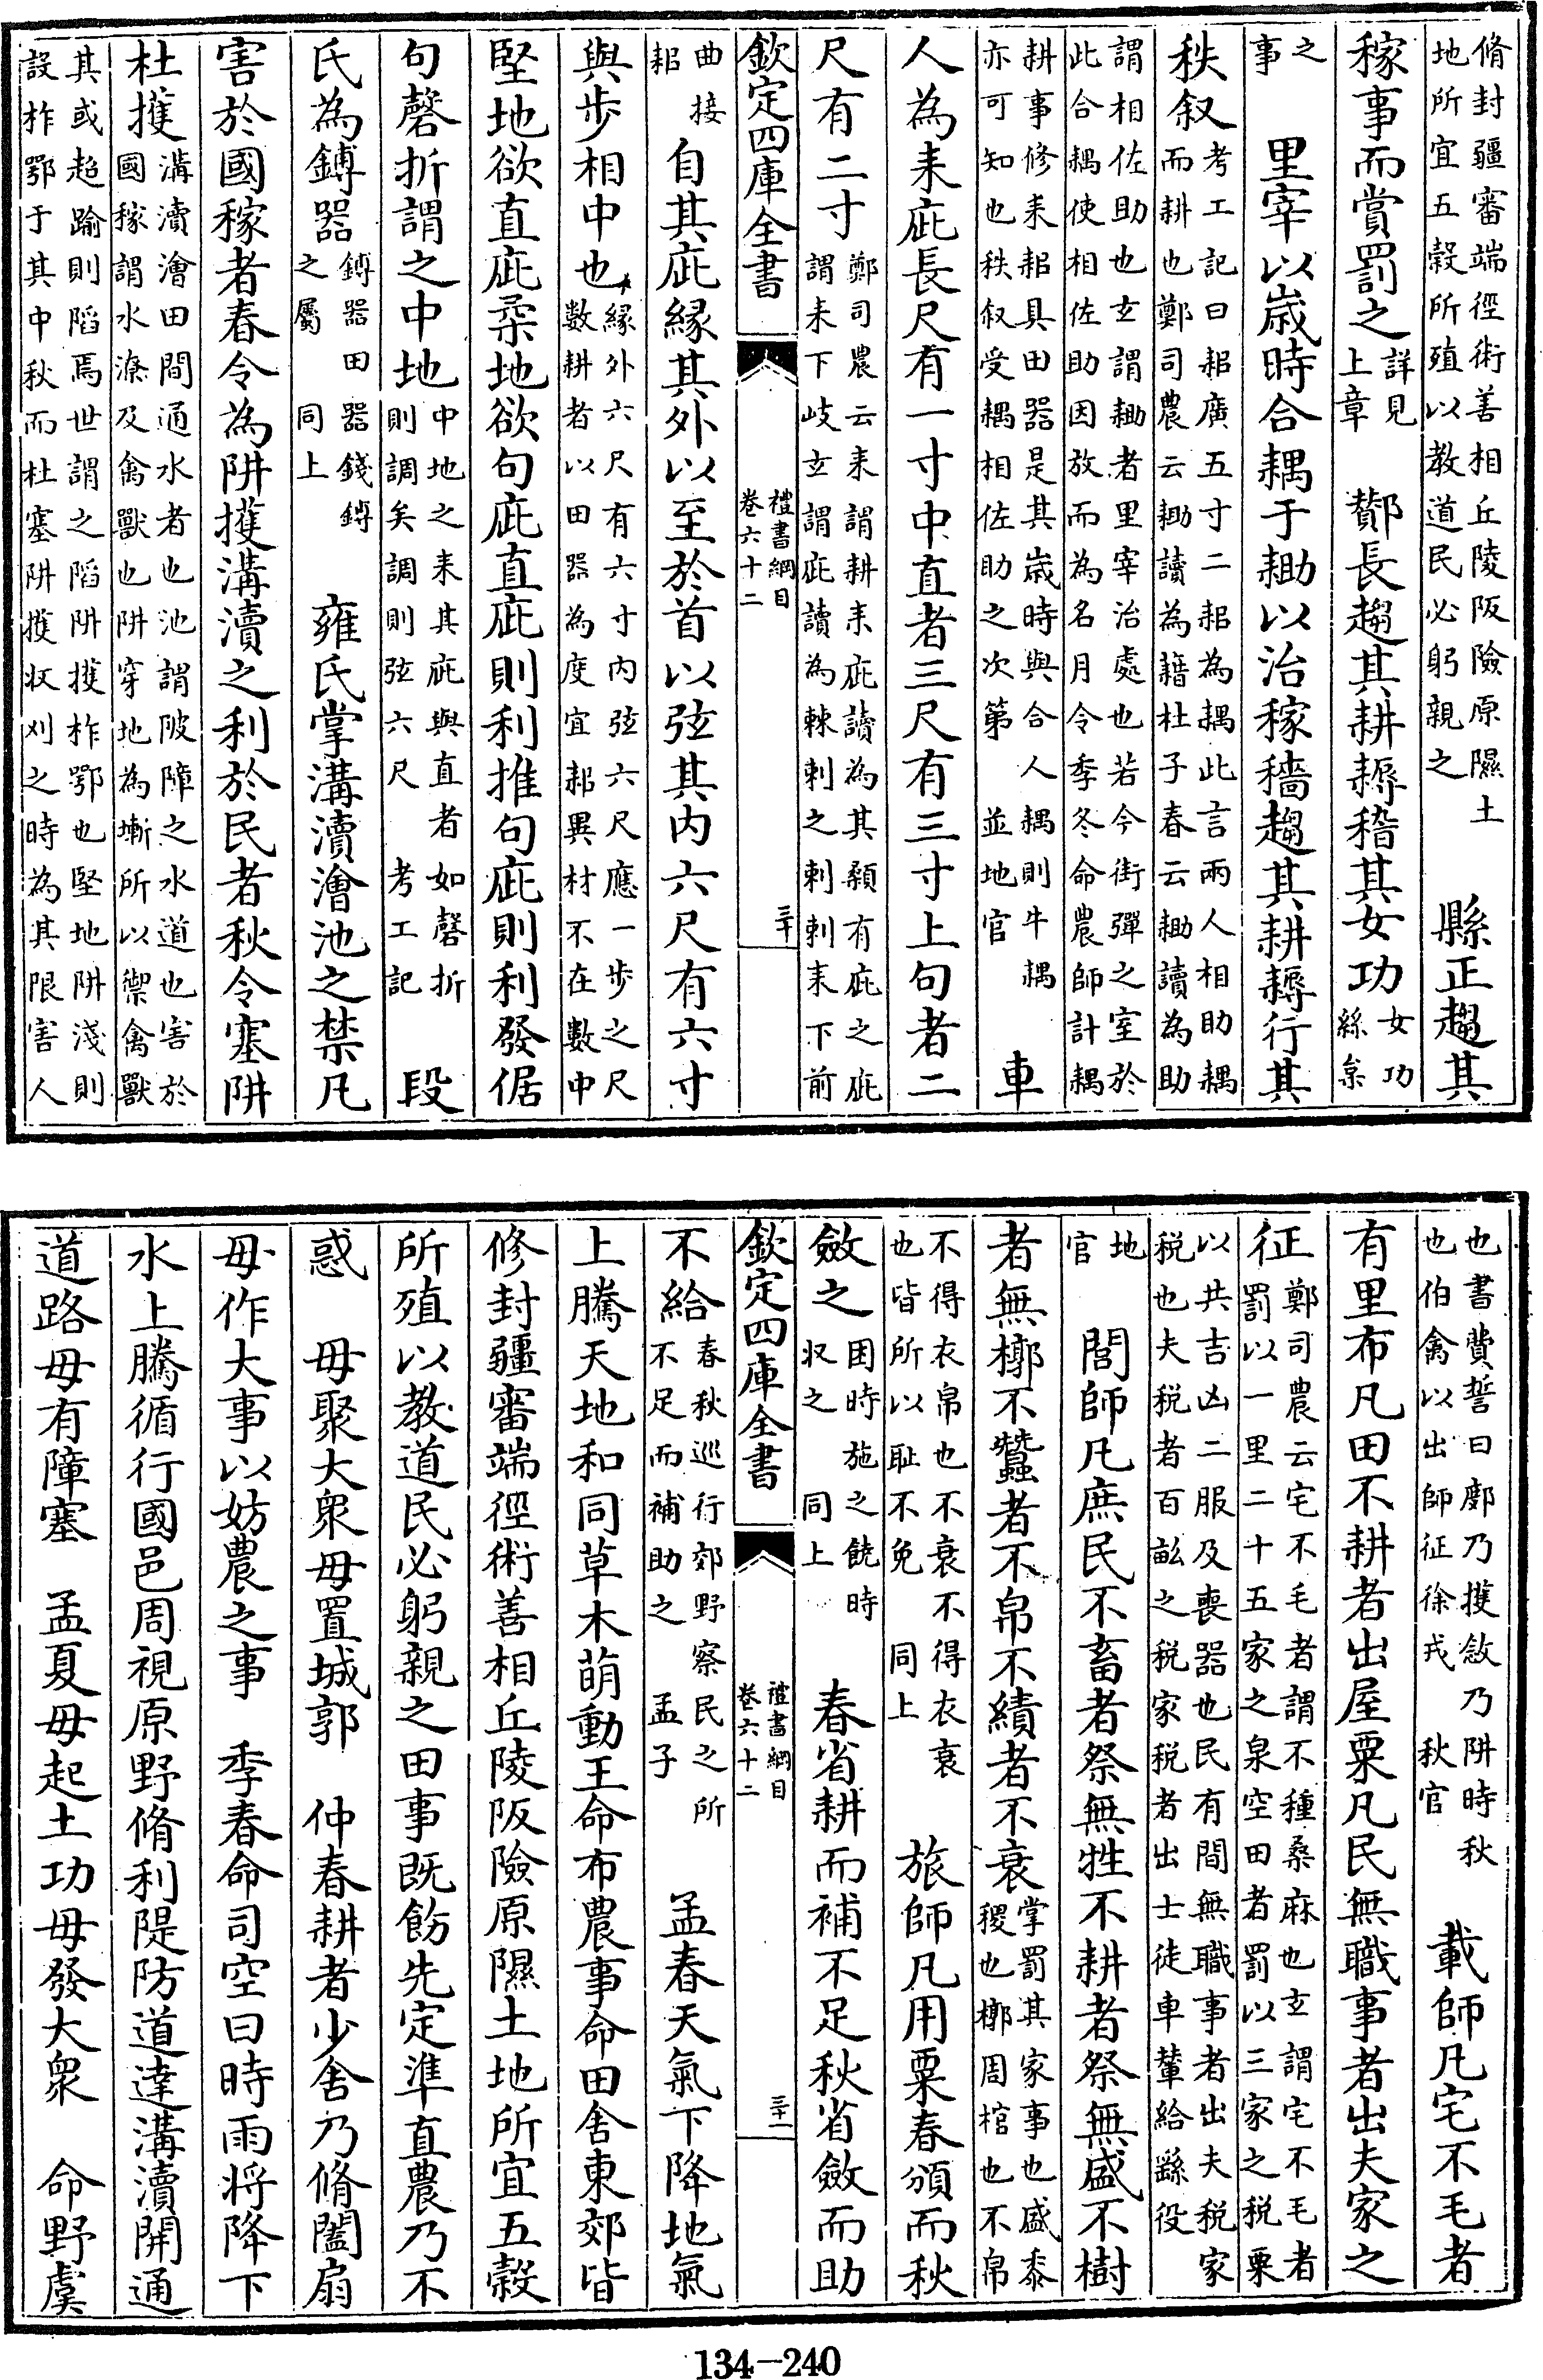 脩封疆審端徑術善相丘陵阪險原隰土
地所宜五穀所殖以教道民必躬親之
縣正趨其
稼事而賞罰之
詳見
上章
酇長趨其耕耨稽其女功
女功
絲枲
之
事
里宰以歲時合耦于耡以治稼穡趨其耕耨行其
秩叙
考工記曰耜廣五寸二耜為耦此言兩人相助耦
而耕也鄭司農云耡讀為藉杜子春云耡讀為助
謂相佐助也玄謂耡者里宰治處也若今街彈之室於
此合耦使相佐助因放而為名月令季冬命農師計耦
耕事修耒耜具田器是其歲時與合人耦則牛耦
亦可知也秩叙受耦相佐助之次第 並地官
車
人為耒庛長尺有一寸中直者三尺有三寸上句者二
尺有二寸
鄭司農云耒謂耕耒庛讀為其顙有庛之庛
謂耒下岐玄謂庛讀為棘刺之刺刺耒下前
欽定四庫全書
禮書綱目
卷六十二
三十
曲接
耜
自其庛緣其外以至於首以弦其內六尺有六寸
與步相中也
緣外六尺有六寸內弦六尺應一步之尺
數耕者以田器為度宜耜異材不在數中
堅地欲直庛柔地欲句庛直庛則利推句庛則利發倨
句磬折謂之中地
中地之耒其庛與直者如磬折
則調矣調則弦六尺 考工記
段
氏為鎛器
鎛器田器錢鎛
之屬 同上
雍氏掌溝瀆澮池之禁凡
害於國稼者春令為阱擭溝瀆之利於民者秋令塞阱
杜擭
溝瀆澮田間通水者也池謂陂障之水道也害於
國稼謂水潦及禽獸也阱穿地為塹所以禦禽獸
其或超踰則陷焉世謂之陷阱擭柞鄂也堅地阱淺則
設柞鄂于其中秋而杜塞阱擭収刈之時為其限害人
也書費誓曰敜乃擭敜乃阱時秋
也伯禽以出師征徐戎 秋官
載師凡宅不毛者
有里布凡田不耕者出屋粟凡民無職事者出夫家之
征
鄭司農云宅不毛者謂不種桑麻也玄謂宅不毛者
罰以一里二十五家之泉空田者罰以三家之稅粟
以共吉凶二服及喪器也民有間無職事者出夫稅家
稅也夫稅者百畝之稅家稅者出士徒車輦給繇役
地
官
閭師凡庶民不畜者祭無牲不耕者祭無盛不樹
者無槨不蠶者不帛不績者不衰
掌罰其家事也盛黍
稷也槨周棺也不帛
不得衣帛也不衰不得衣衰
也皆所以恥不免 同上
旅師凡用粟春頒而秋
斂之
困時施之饒時
収之 同上
春省耕而補不足秋省斂而助
欽定四庫全書
禮書綱目
卷六十二
三十一
不給
春秋巡行郊野察民之所
不足而補助之 孟子
孟春天氣下降地氣
上騰天地和同草木萌動王命布農事命田舍東郊皆
修封疆審端徑術善相丘陵阪險原隰土地所宜五穀
所殖以教道民必躬親之田事既飭先定準直農乃不
惑 毋聚大衆毋置城郭 仲春耕者少舍乃脩闔扇
毋作大事以妨農之事 季春命司空曰時雨將降下
水上騰循行國邑周視原野脩利隄防道達溝瀆開通
道路毋有障塞 孟夏毋起土功毋發大衆 命野虞
134-240